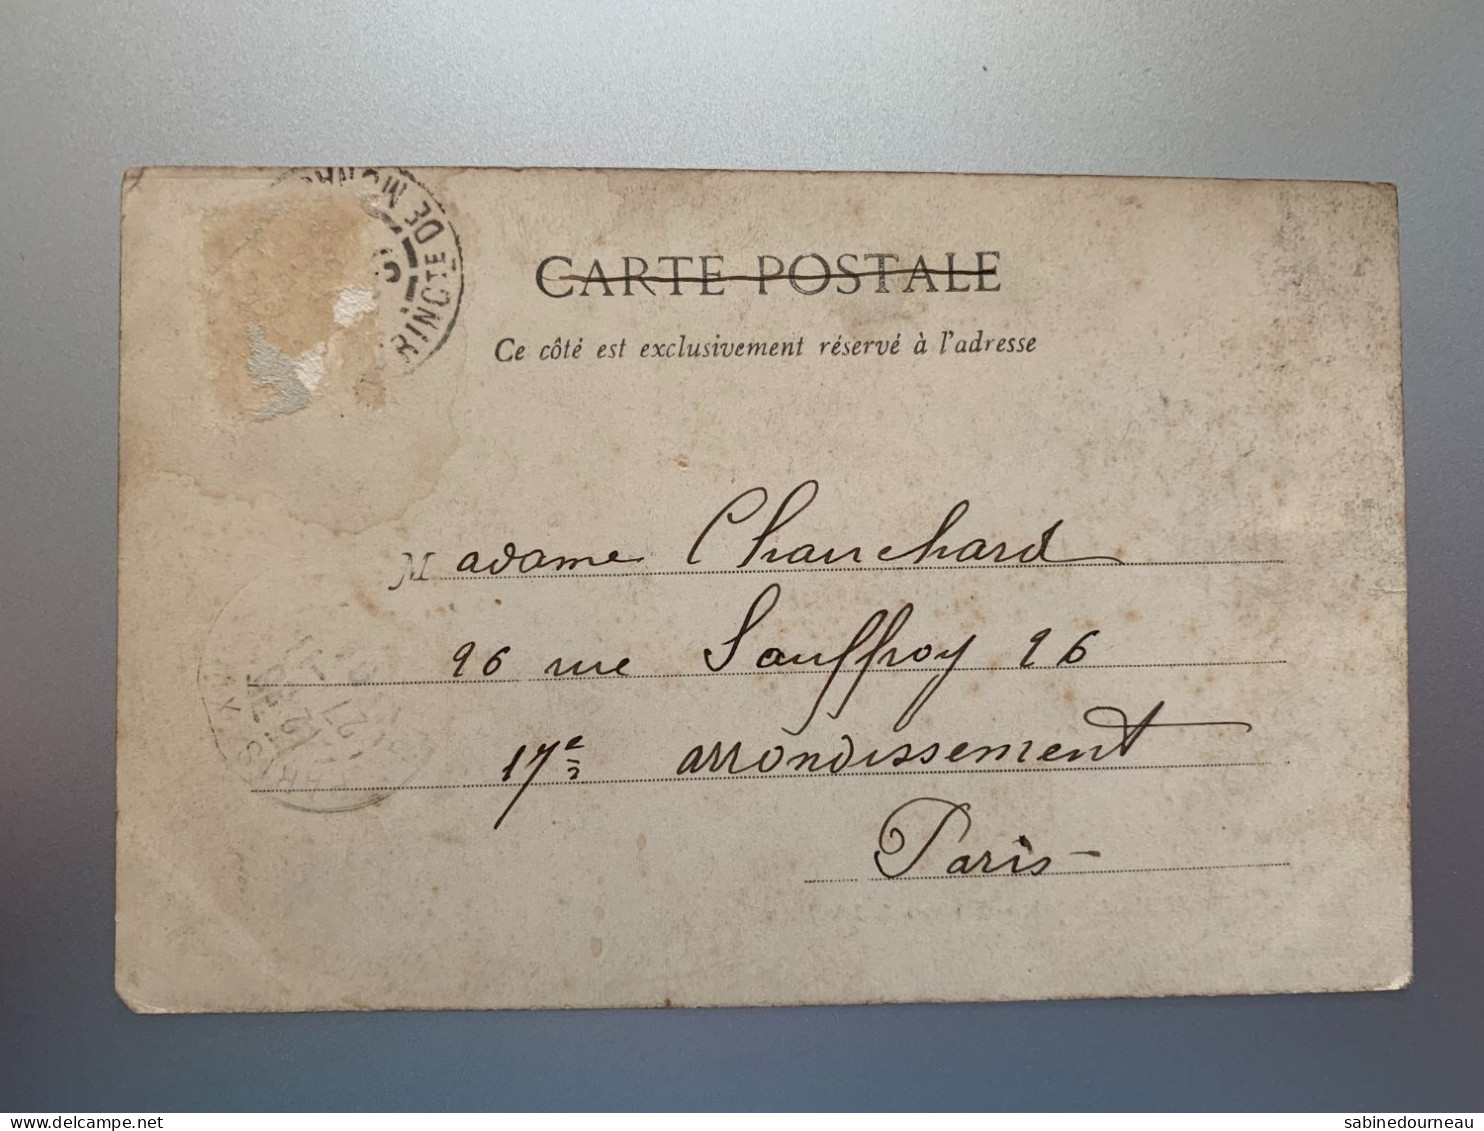 RINCTE DE MON
CARTE POSTALE
Ce côté est exclusivement réservé à l'adresse
Madame Chauchard
26 rue Sauffroy 26
17e arrondissement
Paris
www.delcampe.net
sabinedourneau